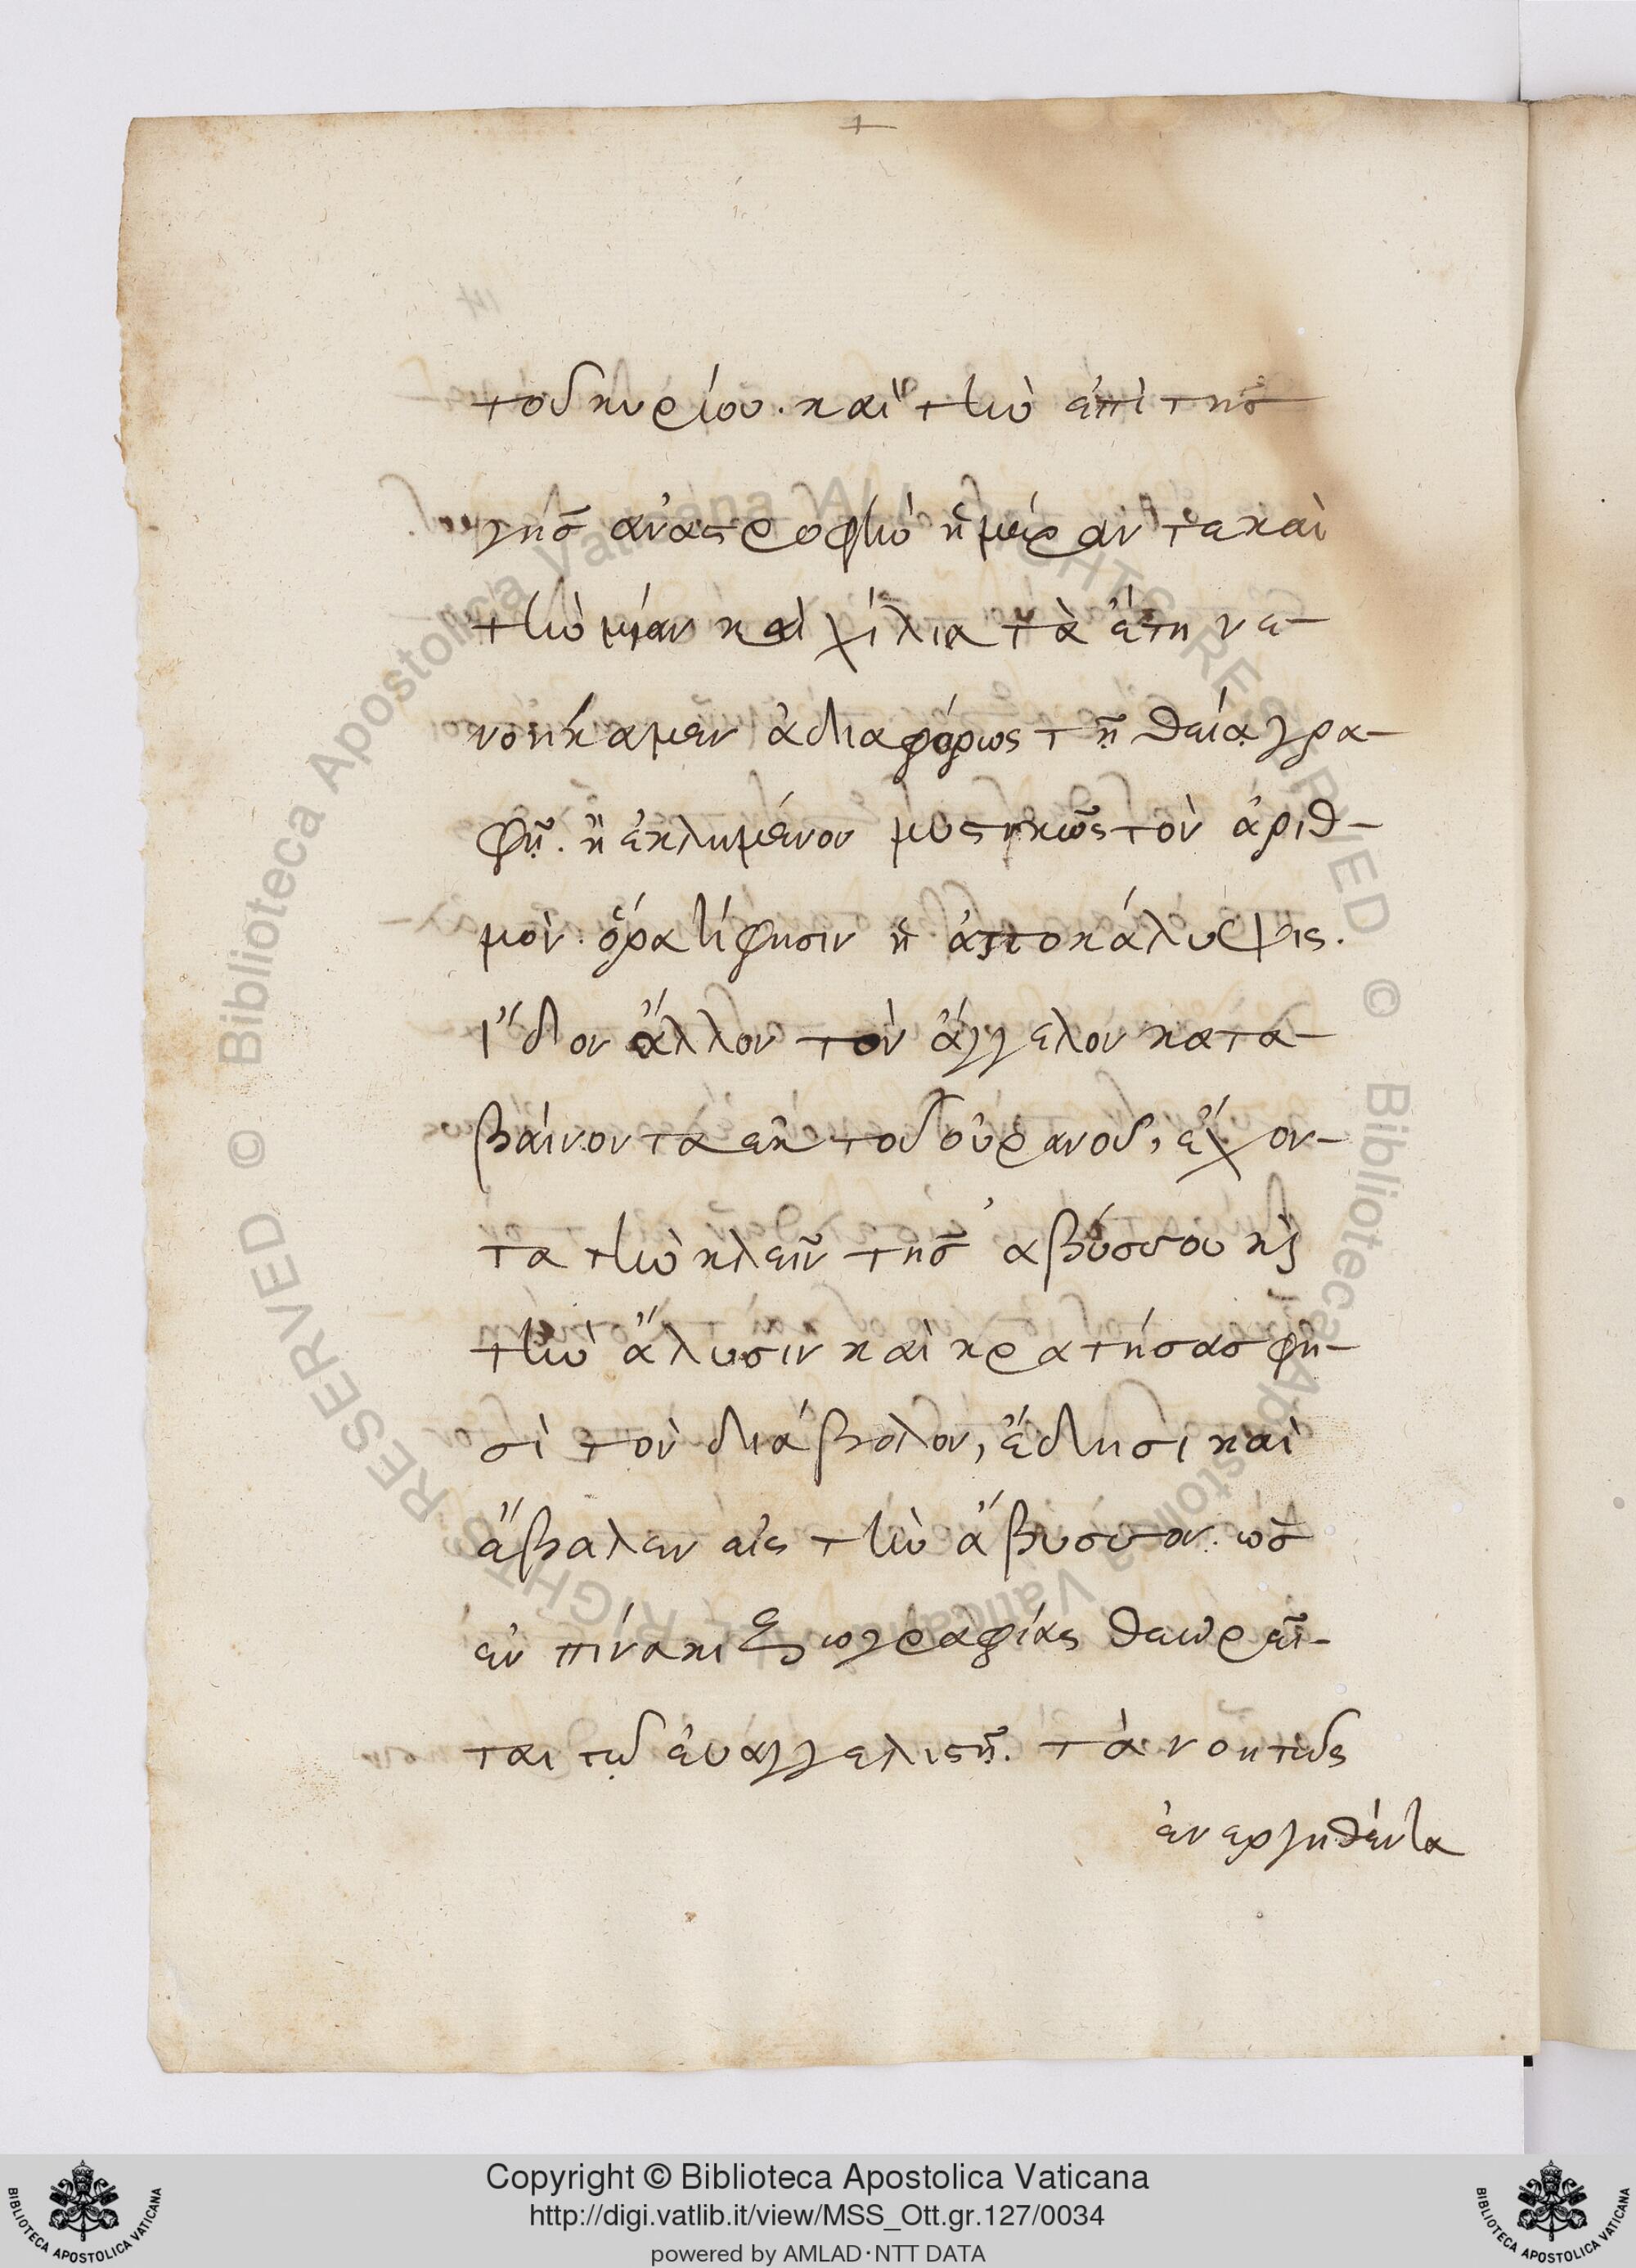 τοῦ κυρίου. καὶ τὴν ἐπὶ τῆς
γῆς ἀναστροφὴν ἡμέραν τε καὶ
τὴν μίαν καὶ χίλια τὰ ἔτη νε-
νοήκαμεν ἀδιαφόρως τῇ θείᾳ γρα-
φῇ. ἢ εἰλημένου μυστικῶς τὸν ἀριθ-
μόν. ὅρα τί φησιν ἡ ἀποκάλυψις.
ἴδον ἄλλον τὸν ἄγγελον κατα-
βαίνοντα ἐκ τοῦ οὐρανοῦ, ἔχον-
τα τὴν κλεῖν τῆς ἀβύσσου κ̀
τὴν ἅλυσιν καὶ κρατήσας φη-
σὶ τὸν διάβολον, ἔδησε καὶ
ἔβαλεν εἰς τὴν ἄβυσσον. ὡς
ἐν πίνακι ζωγραφίας θεωρεῖ-
ται τῷ εὐαγγελιστῇ. τὰ νοητῶς
ἐνεργηθέντα
Copyright © Biblioteca Apostolica Vaticana
http://digi.vatlib.it/view/MSS_Ott.gr.127/0034
powered by AMLAD·NTT DATA
BIBLIOTECA APOSTOLICA VATICANA
BIBLIOTECA APOSTOLICA VATICANA
© Biblioteca Apostolica Vaticana ALL RIGHTS RESERVED © Biblioteca Apostolica Vaticana ALL RIGHTS RESERVED